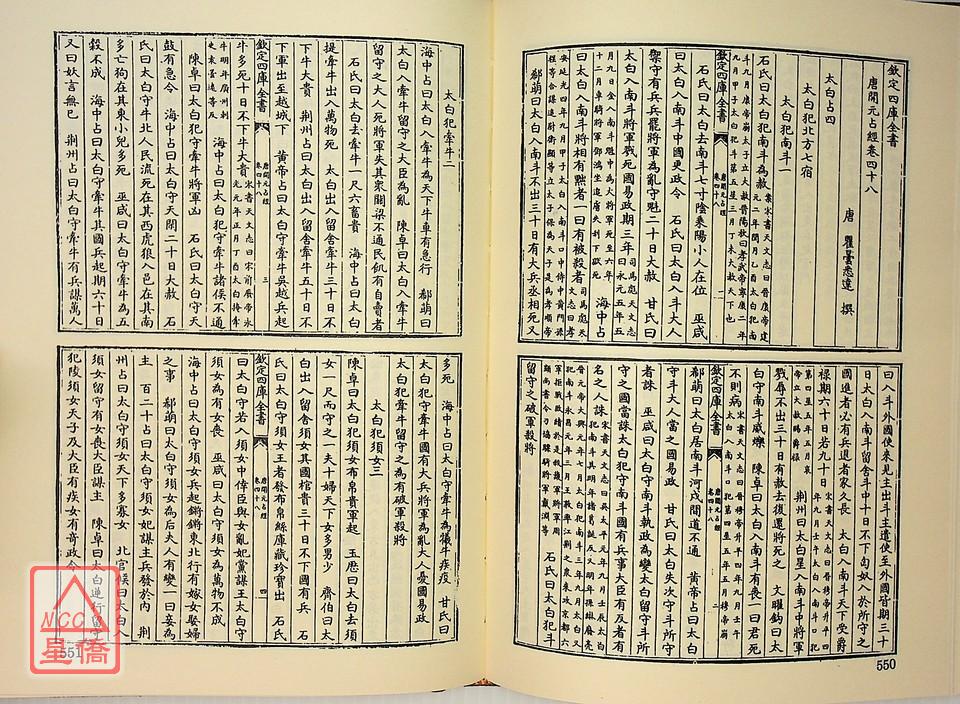 欽定四庫全書
唐開元占經卷四十八
唐 瞿曇悉達 撰
太白占四
太白犯北方七宿
太白犯南斗一
石氏曰太白犯南斗為赦
欽定四庫全書 唐開元占經 卷四十八 二
石氏曰太白去南斗七寸陰乘陽小人在位 巫咸
曰太白入南斗中國更政令 石氏曰太白入斗大人
禦守有兵兵罷將軍為亂守魁二十日大赦 甘氏曰
太白入南斗將軍戰死國易政期三年
海中占
曰太白入南斗將相有黜者一曰有被殺者
郗萌曰太白入南斗不出三十日有大兵丞相死又
曰入斗外國使來見主出斗主遣使至外國皆期三十
日太白入南斗留舍斗中十日不下匄奴入於所守之
國進者必有兵退者家久長 太白入南斗天下受爵
祿期六十日若九十日
荆州曰太白星入南斗中將軍
戮辱不出三十日有赦去復還將死之 文曜鉤曰太
白守南斗威爍 陳卓曰太白入南斗有喪一曰君死
不則病
欽定四庫全書 唐開元占經 卷四十八 二
郗萌曰太白居南斗河戍間道不通 黄帝占曰太白
守斗大人當之國易政 石氏曰太白失次守斗所守
者誅 巫咸曰太白守南斗執政為變太白留守斗所
守之國當誅太白犯守南斗國有兵事大臣有反者有
名之人誅
石氏曰太白犯斗
留守之破軍殺將
550
太白犯牽牛二
海中占曰太白入牽牛為天下牛車有急行 郗萌曰
太白入牽牛留守之大臣為亂 陳卓曰太白入牽牛
留守之大人死將軍失其衆關梁不通民飢有自賣者
石氏曰太白去牽牛一尺六畜貴 海中占曰太白
提牽牛出入萬物死 太白出入留舍牽牛三十日不
下牛大貴 荆州占曰太白出入留舍牽牛五十日不
下軍出至越城下 黄帝占曰太白守牽牛吳越兵起
欽定四庫全書 唐開元占經 卷四十八 三
牛多死十日不下牛大貴
海中占曰太白犯守牽牛諸侯不通
陳卓曰太白犯守牽牛將軍凶 石氏曰太白守天
鼓有急令 海中占曰太白守天關二十日大赦 石
氏曰太白守牛北人民流死在其西虎狼入邑在其南
多亡狗在其東小兒多死 巫咸曰太白守牽牛為五
穀不成 海中占曰太白守牽牛其國兵起期六十日
又曰妖言無已 荆州占曰太白守牽牛有兵謀萬人
多死 海中占曰太白守牽牛為犧牛疾疫 甘氏曰
太白犯守牽牛國有大兵將軍為亂大人憂國易政
太白犯牽牛留守之為有破軍殺將
太白犯須女三
陳卓曰太白犯須女布帛貴軍起 玉厯曰太白去須
女一尺而守之一夫十婦天下女多男少 齊伯曰太
白出入留舍須女其國棺貴三十日不下國有兵
氏曰太白守須女王者發布帛絲庫藏珍寶出 石氏
欽定四庫全書 唐開元占經 卷四十八 四
曰太白守若入須女中倖臣與女亂妃黨謀王太白守
須女為有女喪 巫咸曰太白守須女為萬物不成
海中占曰太白守須女兵起鏘鏘東北行有嫁女娶婦
之事 郗萌曰太白守須女為后夫人有變一曰妾為
主 百二十占曰太白守須女妃謀主兵發於內 荆
州占曰太白守須女天下多寡女 北官候曰太白入
須女留守有女喪大臣謀主 陳卓曰太白逆行留守
犯陵須女天子及大臣有疾女有奇政令
551
NCC
星僑